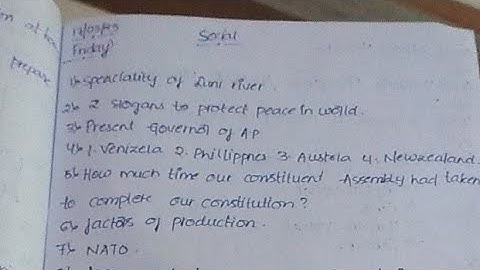 on of
prepare
Friday
Social
1) speaciality of Luni river.
2) 2 slogans to protect peace in world.
3) Present Governor of A.P
4) 1. Venizela 2. Phillippnes 3. Austrla 4. Newzealand.
5) How much time our constituent Assembly had taken
to complete our constitution?
6) factors of production.
7) NATO.